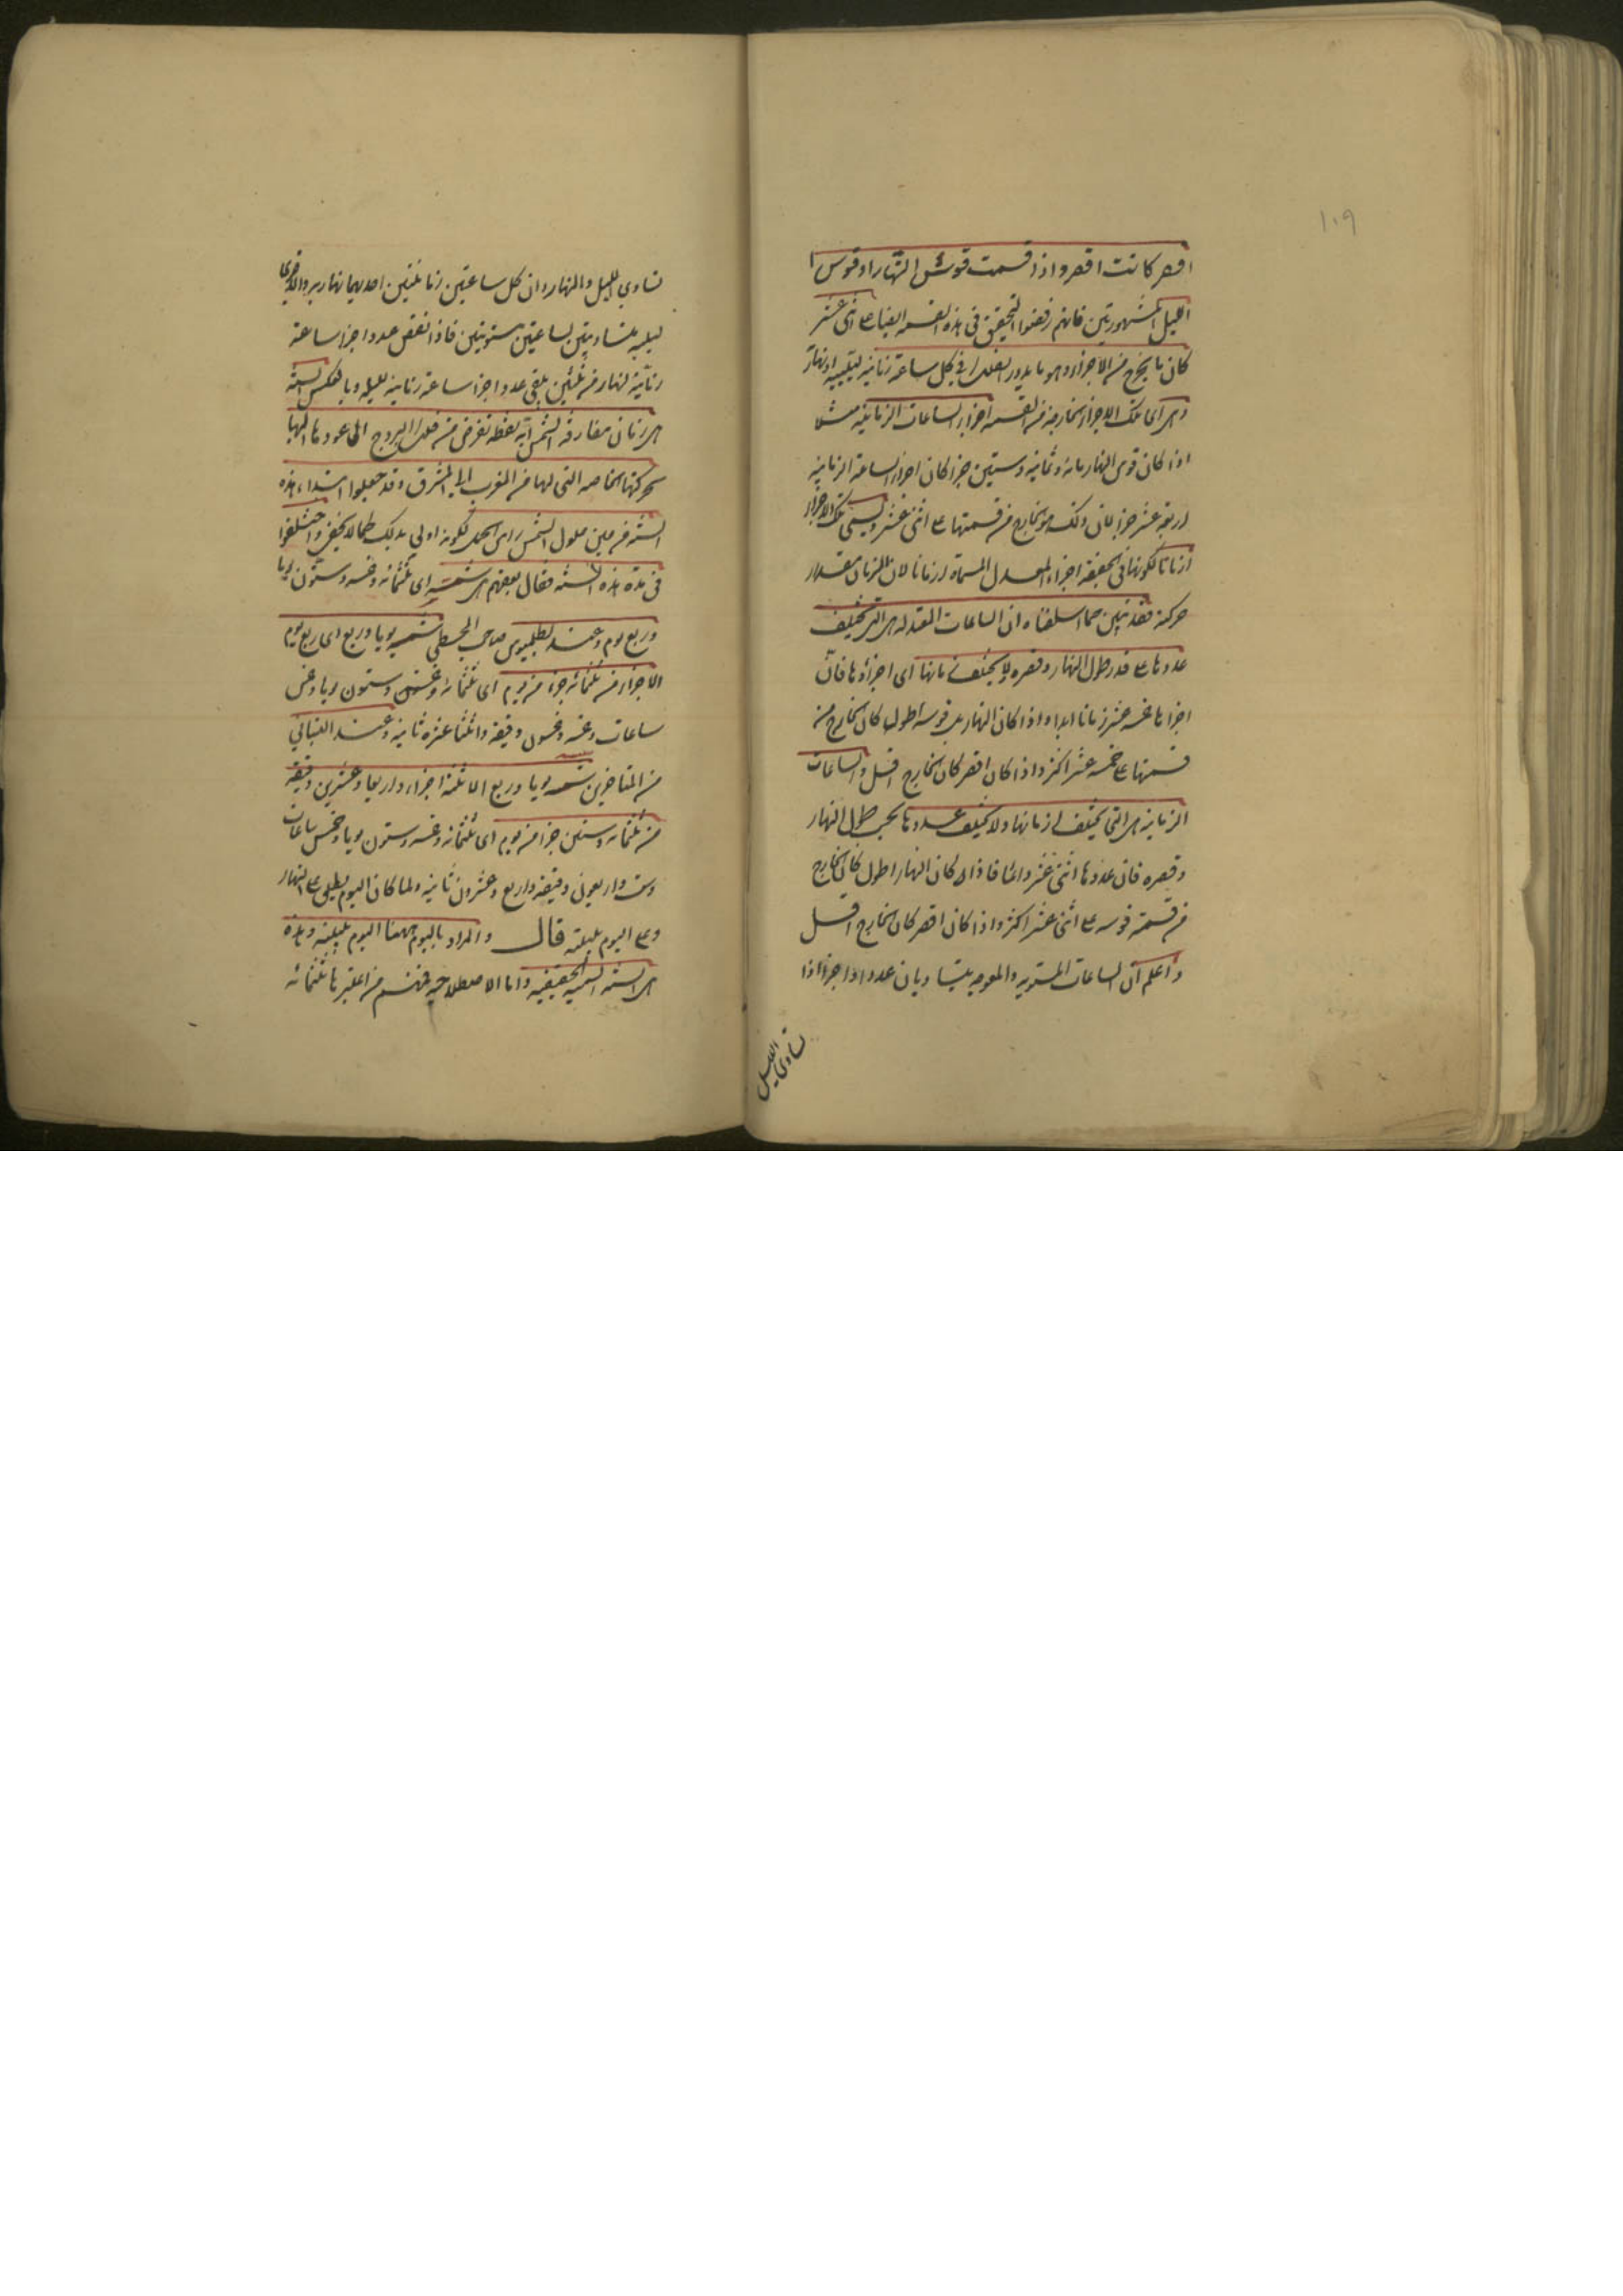 ١٠٩
اقصر كانت اقصر واذا قسمت قوس النهار او قوس
الليل المشهورتين فانهم رفضوا التحقيق فى هذه القسمة ايضا على اثنى عشر
كان ما يخرج من الاجزاء وهو ما يدور الفلك فى كل ساعة زمانية ليلية او نهارية
وهى اى تلك الاجزاء الخارجة من القسمة اجزاء الساعات الزمانية مثلا
اذا كان قوس النهار مائة وثمانية وستين جزءا كان اجزاء الساعة الزمانية
اربعة عشر جزءا لان ذلك هو الخارج من قسمتها على اثنى عشر ويسمى تلك الاجزاء
ازمانا لكونها فى الحقيقة اجزاء المعدل المسماة ازمانا لان الزمان مقدار
حركته فقد تبين مما اسلفناه ان الساعات المعتدلة هى التى تختلف
عددها على قدر طول النهار وقصره ولا يختلف ازمانها اى اجزاؤها فان
اجزاءها خمسة عشر زمانا ابدا واذا كان النهار قوسه اطول كان الخارج من
قسمتها على خمسة عشر اكثر واذا كان اقصر كان الخارج اقل والساعات
الزمانية هى التى تختلف ازمانها ولا تختلف عددها بحسب طول النهار
وقصره فان عددها اثنى عشر دائما فاذا كان النهار اطول كان الخارج
من قسمة قوسه على اثنى عشر اكثر واذا كان اقصر كان الخارج اقل
واعلم ان الساعات المستوية والمعوجة يتساويان عددا واجزاء اذا
تساوى الليل
تساوى الليل والنهار وان كل ساعتين زمانيتين احديهما نهارية والاخرى
ليلية متساويتين لساعتين مستويتين فاذا نقص عدد اجزاء ساعة
زمانية لنهار من ثلثين بقى عدد اجزاء ساعة زمانية لليله وبالعكس السنة
هى زمان مفارقة الشمس اية نقطة تفرض من فلك البروج الى عودها اليها
بحركتها الخاصة التى لها من المغرب الى المشرق وقد جعلوا ابتداء هذه
السنة من حين حلول الشمس راس الحمل لكونه اولى بذلك كما لا يخفى واختلفوا
فى مدة هذه السنة فقال بعضهم هى شسه اى ثلثمائة وخمسة وستون يوما
وربع يوم وعند بطلميوس صاحب المجسطى شسه يوما وربع اى ربع يوم
الا جزءا من ثلثمائة جزء من يوم اى ثلثمائة وخمسة وستون يوما وخمس
ساعات وخمسة وخمسون دقيقة واثنتا عشرة ثانية وعند البتانى
من المتاخرين شسه يوما وربع الا ثلثة اجزاء واربعا وعشرين دقيقة
من ثلثمائة وستين جزءا من يوم اى ثلثمائة وخمسة وستون يوما وخمس ساعات
وست واربعون دقيقة واربع وعشرون ثانية ولما كان اليوم يطلق على النهار
وعلى اليوم بليلته قال والمراد باليوم ههنا اليوم بليلته وهذه
هى السنة الشمسية الحقيقية واما الاصطلاحية فمنهم من اعتبرها ثلثمائة